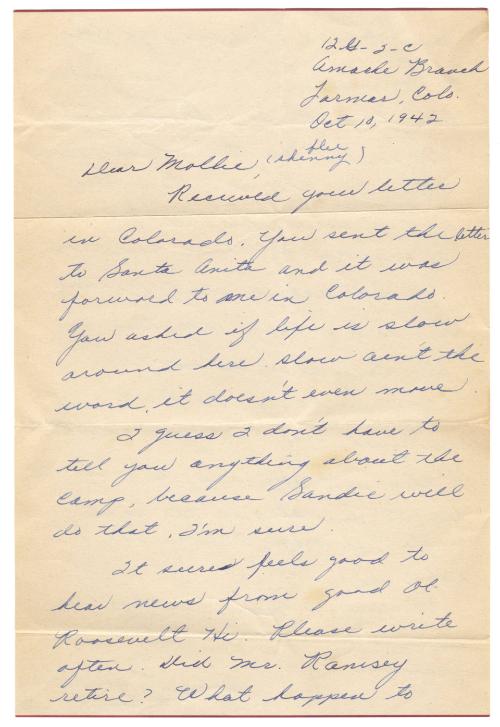 12G-2-C
Amache Branch
Larmar, Colo.
Oct 10, 1942
Dear Mollie, (skinny)
Received your letter
in Colorado. You sent the letter
to Santa Anita and it was
forword to me in Colorado.
You asked if life is slow
around here. slow ain't the
word, it doesn't even move.
I guess I don't have to
tell you anything about the
camp, because Sandie will
do that, I'm sure.
It sures feels good to
hear news from good ol'
Roosevelt Hi. Please write
often. Did Mr. Ramsey
retire? What happen to